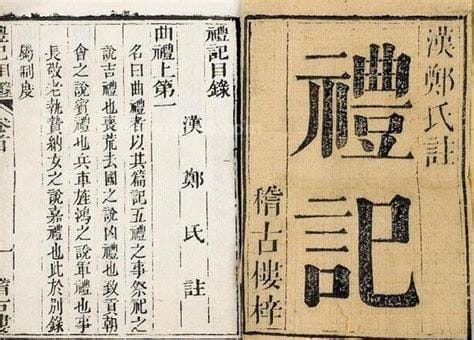 漢鄭氏註
禮記
稽古樓梓
禮記目錄
漢鄭氏註
曲禮上第一
名曰曲禮者以其篇記五禮之事祭祀之
說吉禮也喪荒去國之說凶禮也致貢朝
會之說賓禮也兵車旌鴻之說軍禮也事
長敬老執贄納女之說嘉禮也此於別錄
屬制度
禮記目錄 卷首
稽古樓